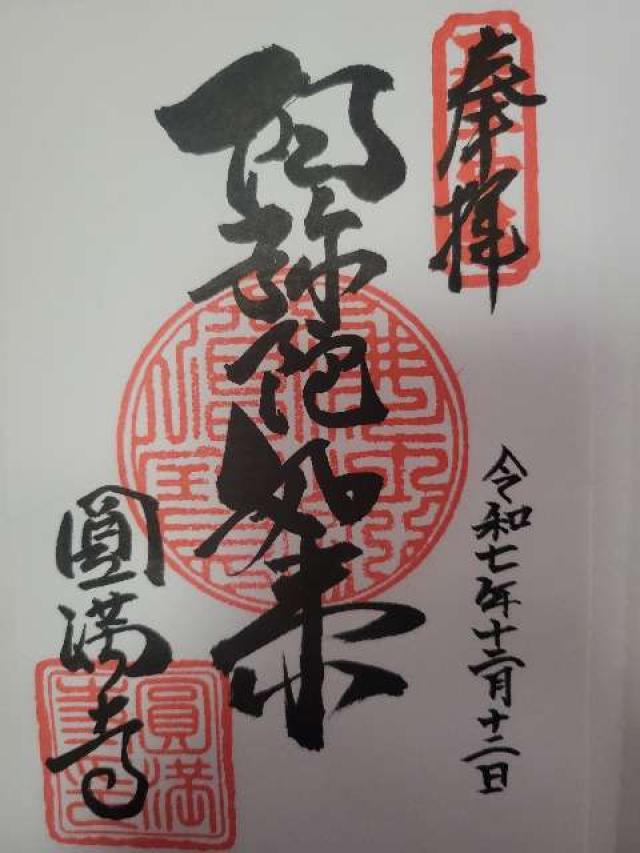 奉拝
阿弥陀如来
圓満寺
令和七年十二月十二日
圓満